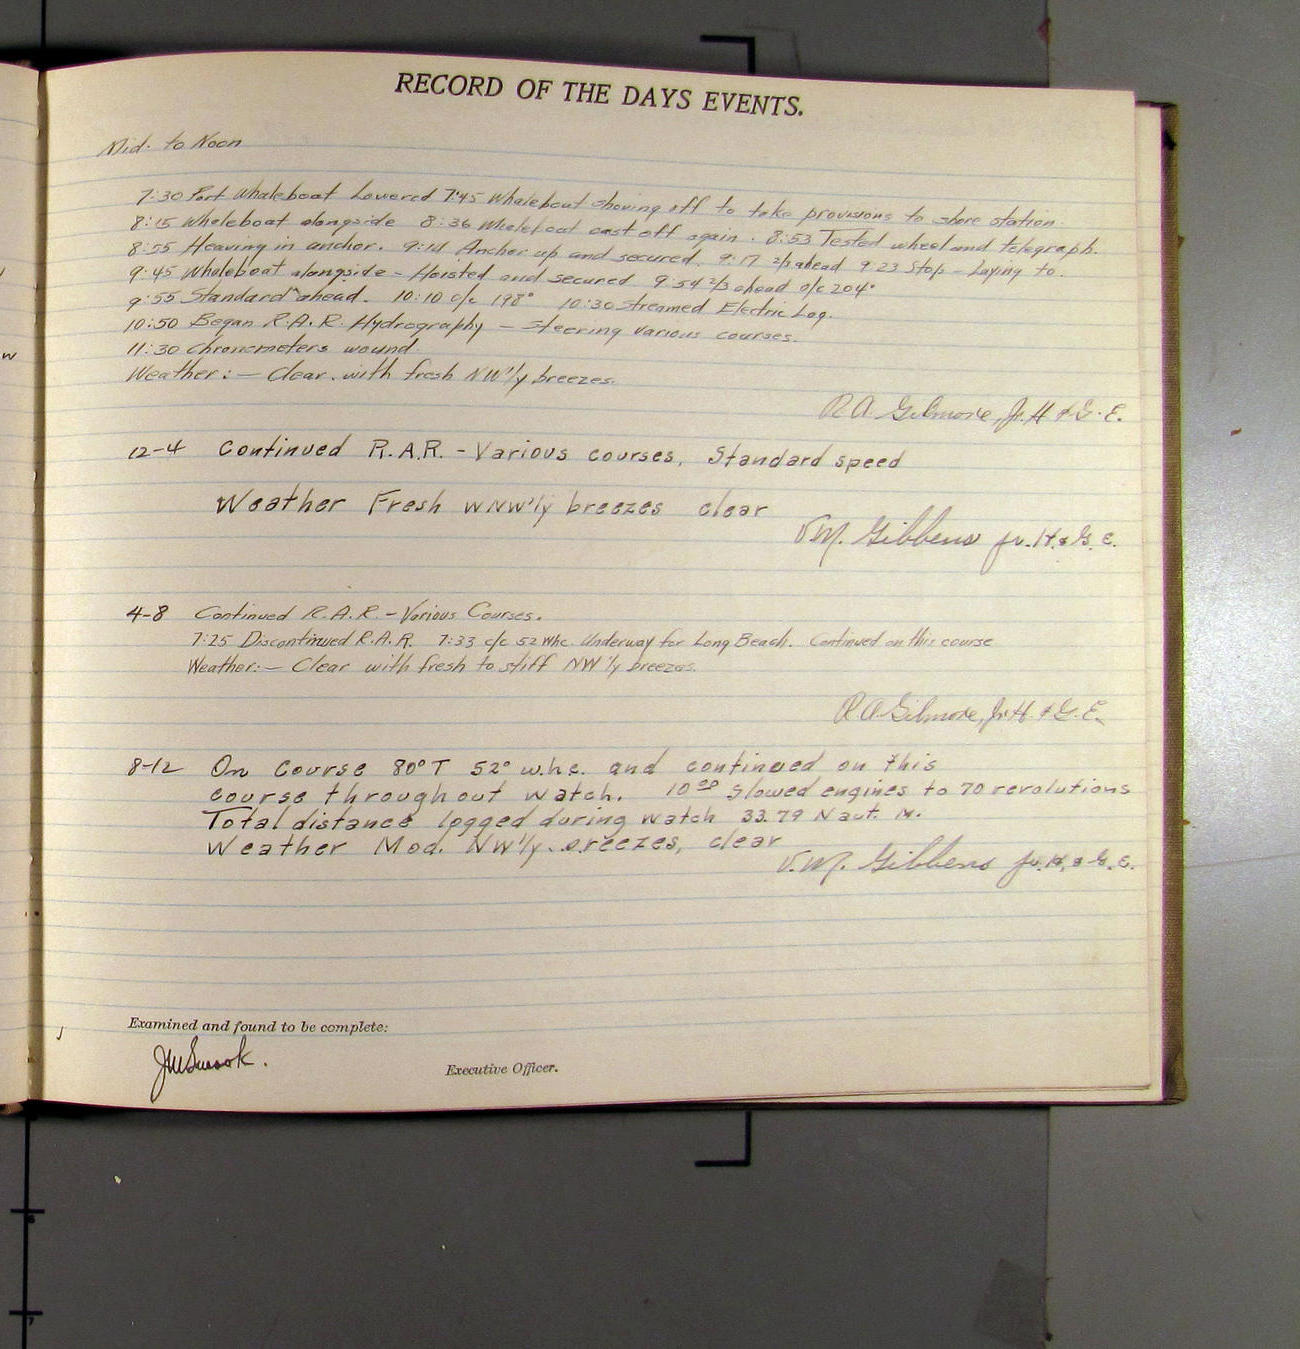 RECORD OF THE DAYS EVENTS.
Mid. to Noon
7:30 Port Whaleboat Lowered 7:45 Whaleboat shoving off to take provisions to shore station.
8:15 Whaleboat alongside 8:36 Whaleboat cast off again. 8:53 Tested wheel and telegraph.
8:55 Heaving in anchor. 9:14 Anchor up and secured. 9:17 2/3 ahead 9:23 Stop - Laying to.
9:45 Whaleboat alongside - Hoisted and secured 9:54 2/3 ahead c/c 204°
9:55 Standard ahead. 10:10 c/c 198° 10:30 Streamed Electric Log.
10:50 Began R.A.R. Hydrography - steering various courses.
11:30 Chronometers wound
Weather:- Clear with fresh NW'ly breezes.
R A Gilmore, Jr. H & G. E.
12-4 Continued R.A.R. - Various courses, Standard speed
Weather Fresh WNW'ly breezes clear
V.M. Gibbens Jr. H. & G. E.
4-8 Continued R.A.R. - Various Courses.
7:25 Discontinued R.A.R. 7:33 c/c 52 whc. Underway for Long Beach. Continued on this course
Weather:- Clear with fresh to stiff NW'ly breezes.
R A Gilmore, Jr. H & G. E.
8-12 On Course 80° T 52° w.h.c. and continued on this
course throughout watch. 10 00 Slowed engines to 70 revolutions
Total distance logged during watch 33.79 Naut. M.
Weather Mod. NW'ly breezes, clear
V.M. Gibbens Jr. H. & G. E.
Examined and found to be complete:
Executive Officer.